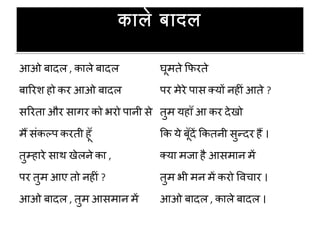 काले बादल
आओ बादल , काले बादल
बारिश हो कर आओ बादल
सरिता और सागर को भरो पानी से
मैं संकल्प करती हूँ
तुम्हारे साथ खेलने का ,
पर तुम आए तो नहीं ?
आओ बादल , तुम आसमान में
घूमते फिरते
पर मेरे पास क्यों नहीं आते ?
तुम यहाँ आ कर देखो
कि ये बूँदें कितनी सुन्दर हैं ।
क्या मजा है आसमान में
तुम भी मन में करो विचार ।
आओ बादल , काले बादल ।